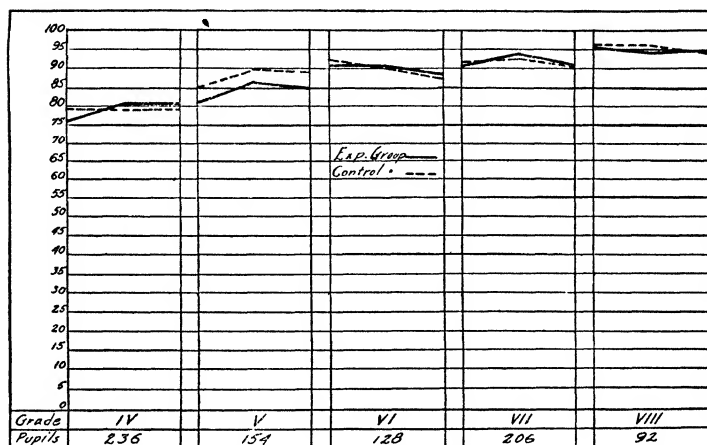 100
95
90
85
80
75
70
65
60
55
50
45
40
35
30
25
20
15
10
5
0
Exp. Group
Control "
Grade IV V VI VII VIII
Pupils 236 154 128 206 92